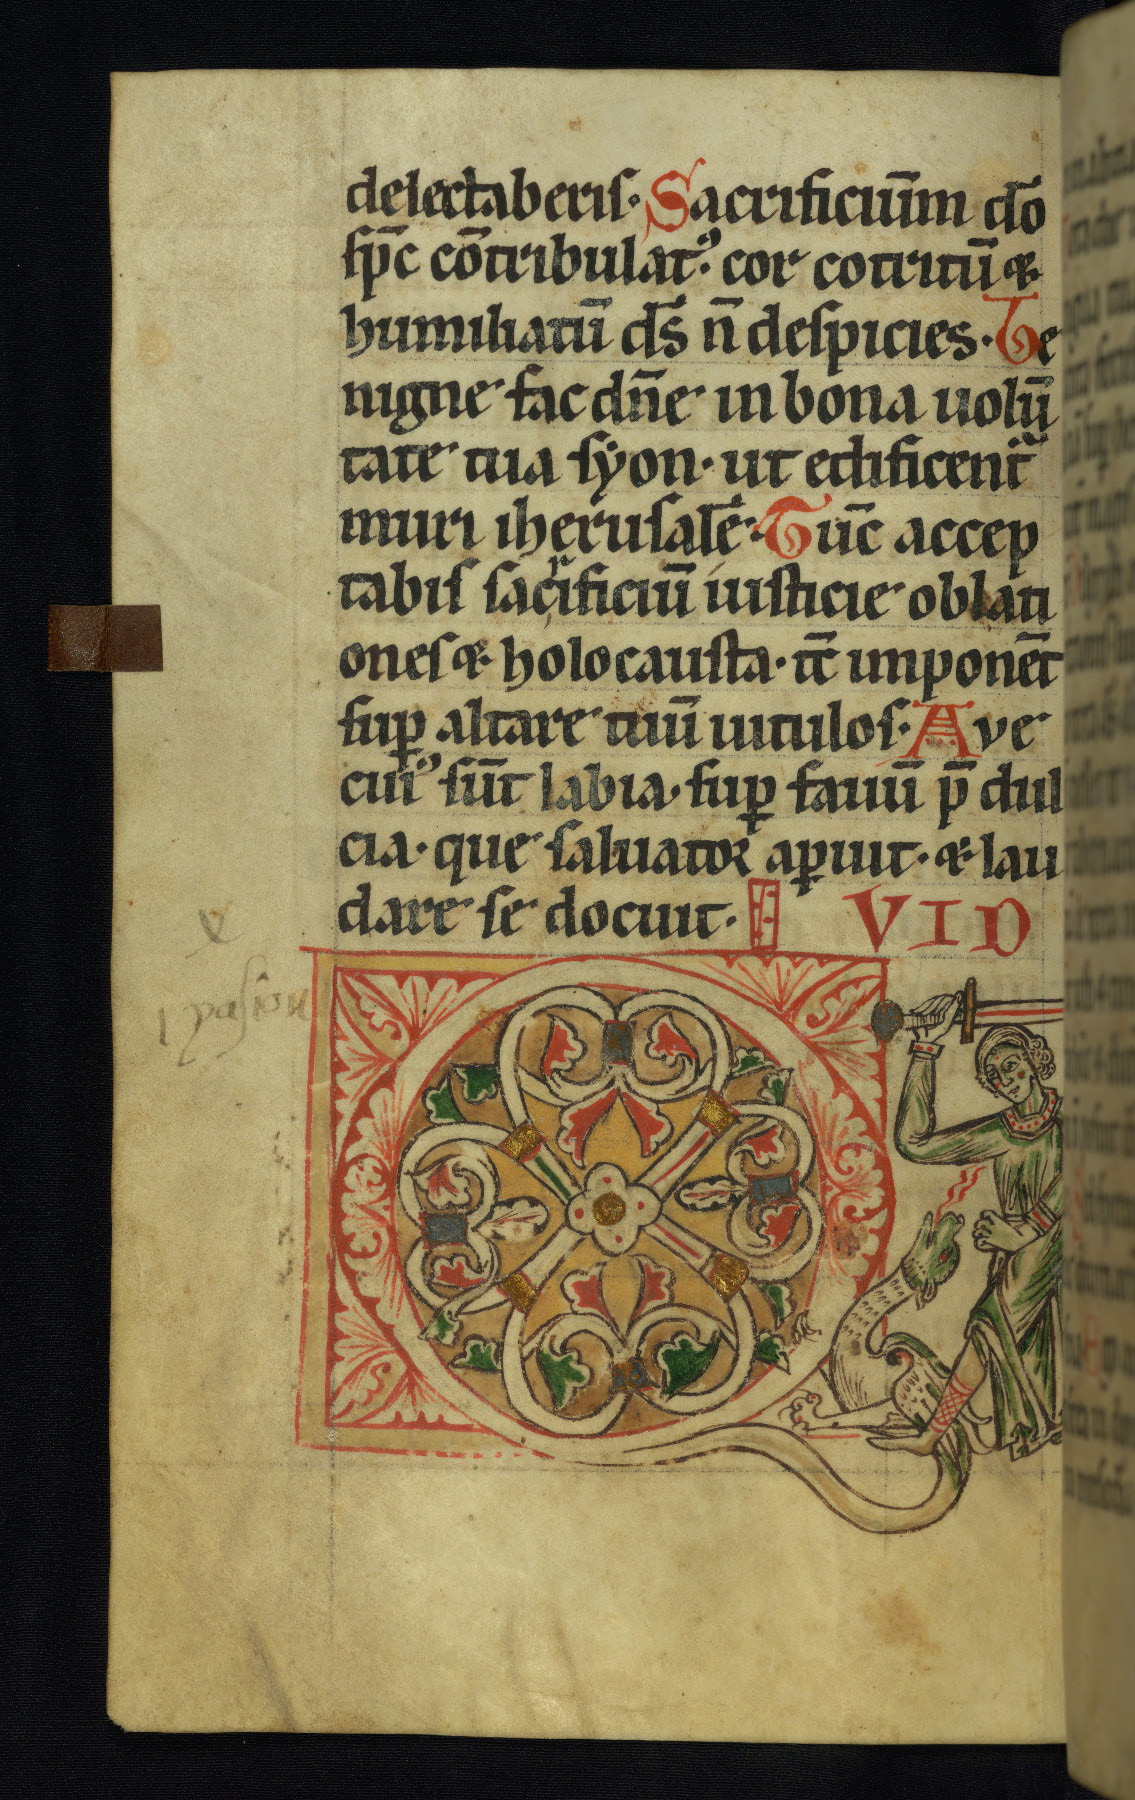 delectaberis· Sacrificiu̅m do̅
sp̅c co̅tribulatꝰ· cor cotritu̅ &
humiliatu̅ ds̅ n̅ despicies· Be
nigne fac dn̅e in bona uolu̅
tate tua syon· ut edificent᷑
muri iherusale̅· Tu̅c accep
tabis sac͛ificiu̅ iusticie oblati
ones & holocausta· tc̅ imponet̅
suꝑ altare tuu̅ uitulos· Ave
cuiꝰ su̅t labia· suꝑ fauu̅ p̅ dul
cia· que saluator aꝑuit· & lau
dare se docuit·
VID